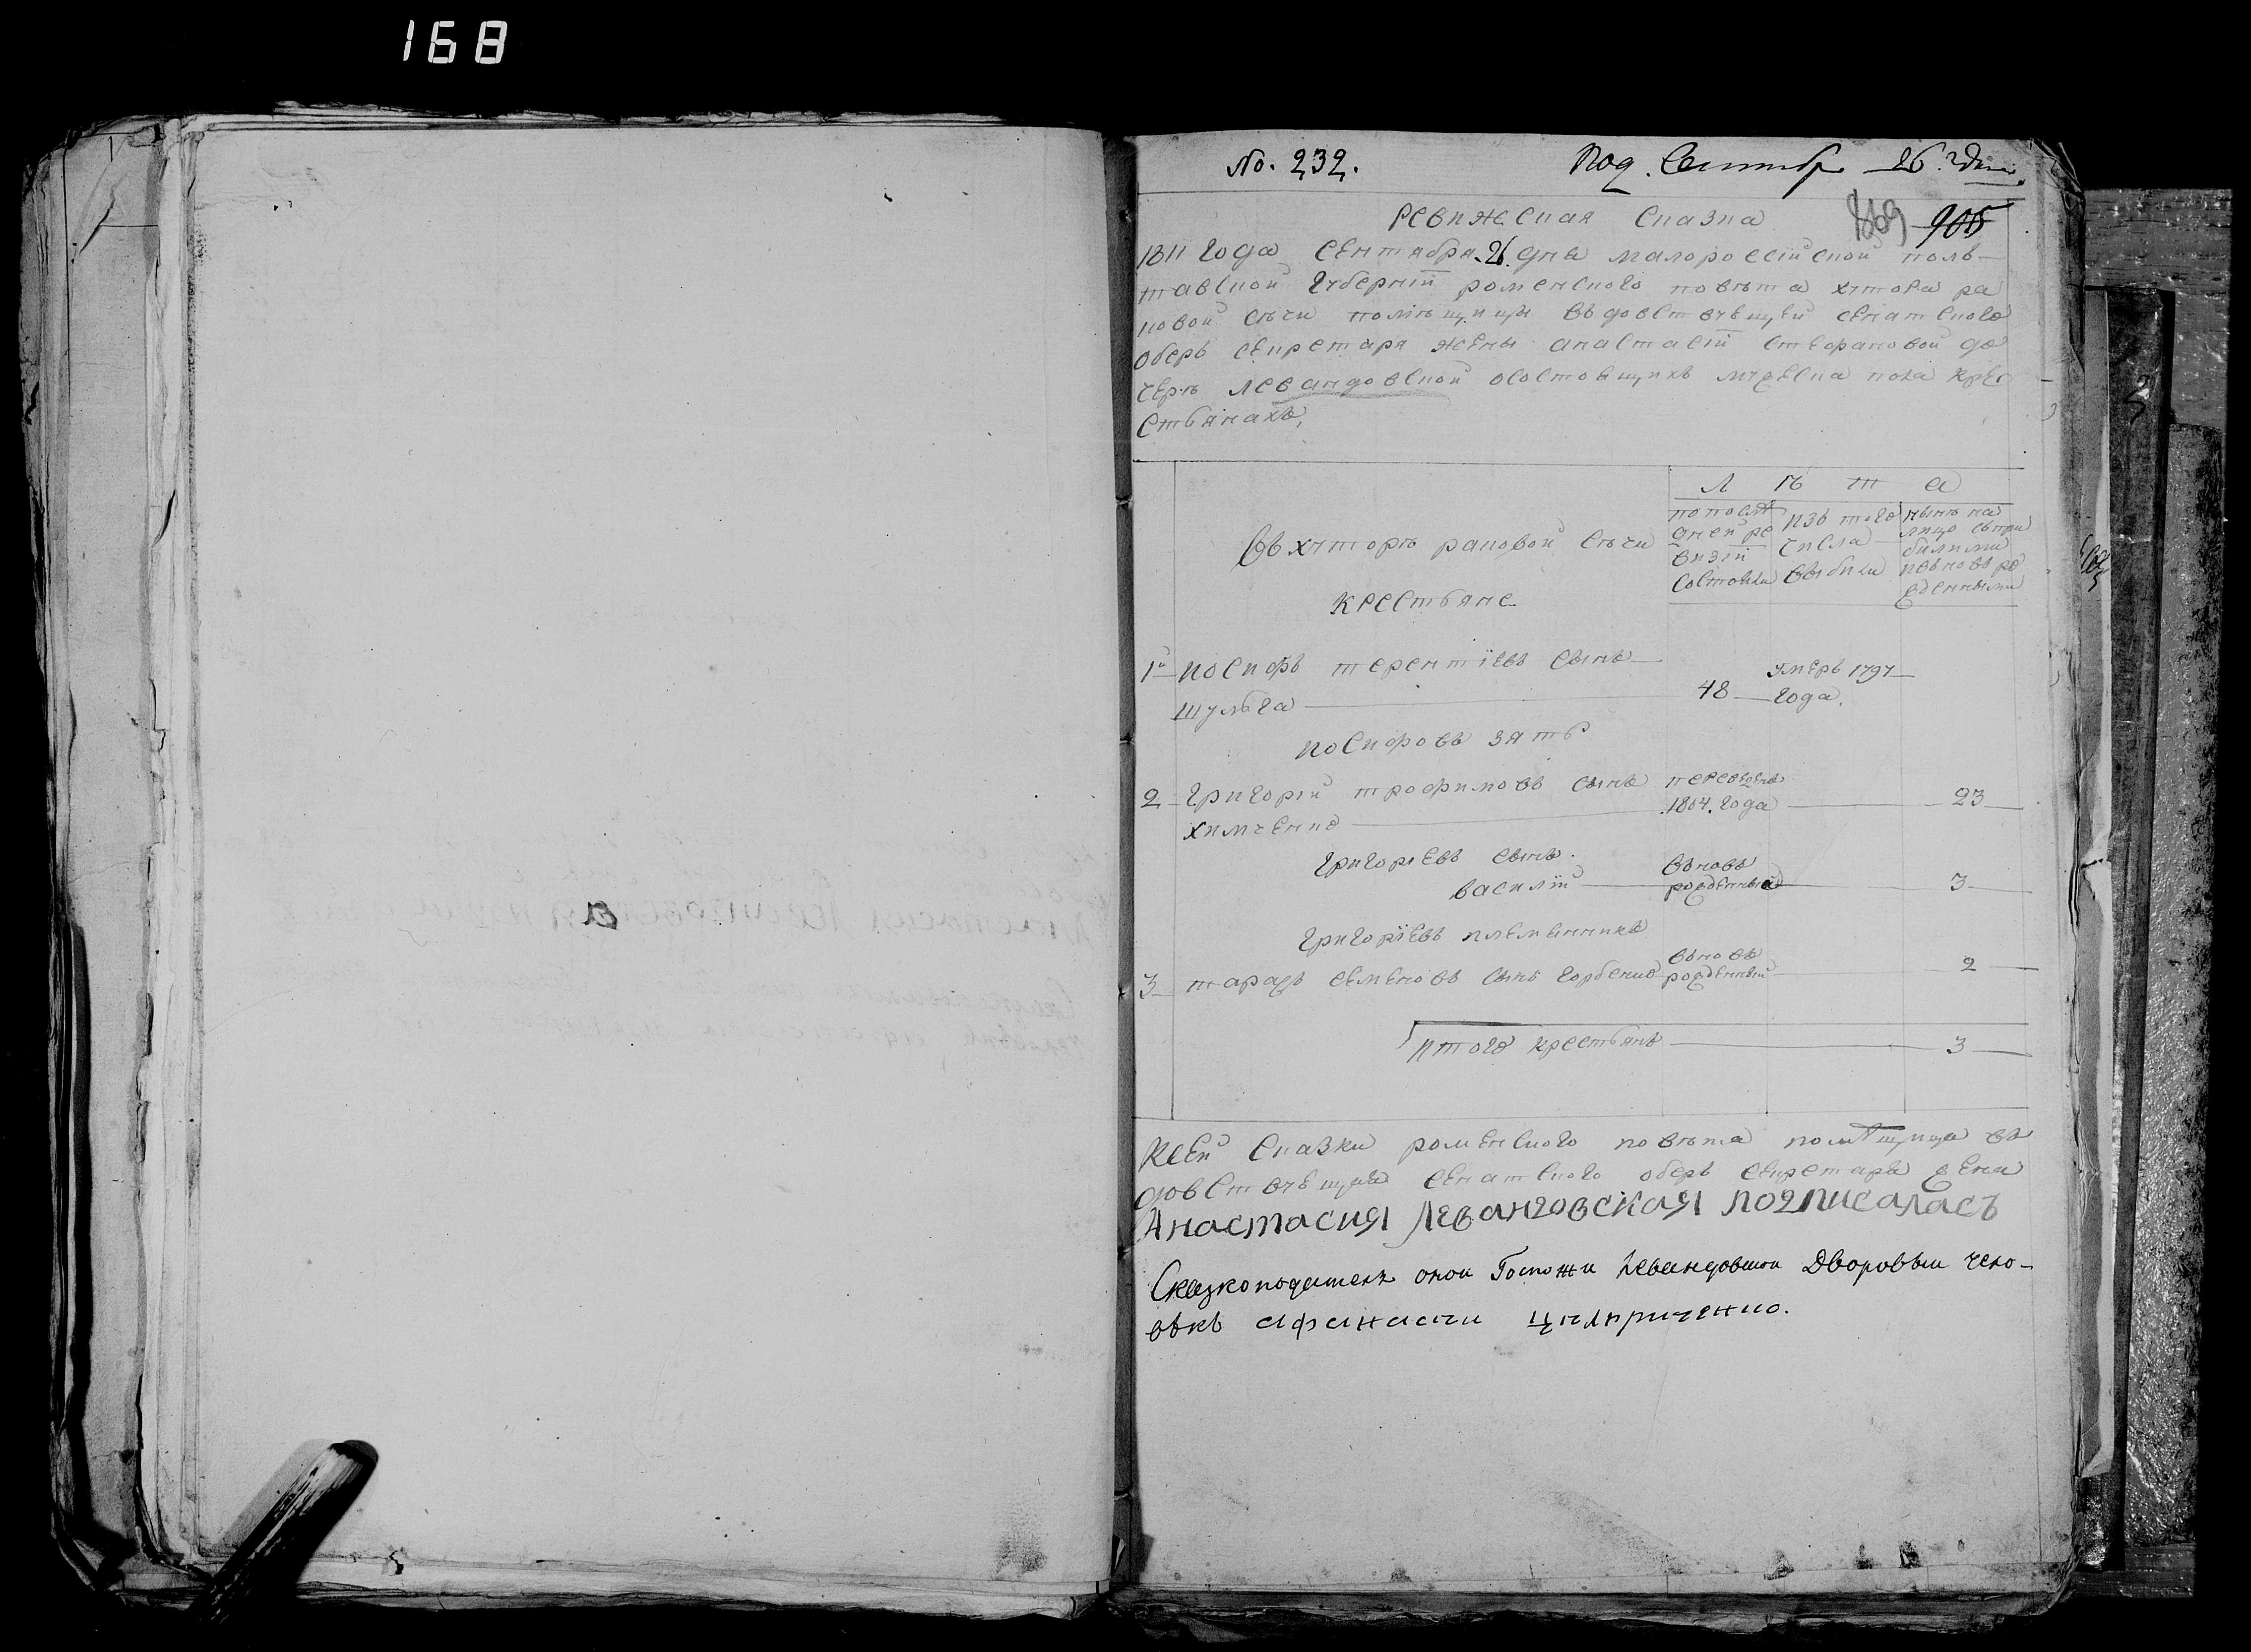 168
No. 232.
Под. Сентябр 26. дня
Ревижская сказка
869 905
1811 года сентября 26. дня малороссійской пол-
тавской губерніи роменского повѣта хутора ра
ковой сѣчи помѣщици вдовствующей сенатского
оберъ секретаря жены анастасіи стефановой до
черѣ левандовской осостоящихъ мужеска пола крес
стьянахъ,
Л ѣ т а
въ хуторѣ раковой сѣчи
крестьяне
попослѣ
дней ре
визіи
состояли
изъ того
числа
выбили
нынѣ на
лицо съпри
былими
ивъновь ро
жденными
1й иосифъ терентіевъ сынъ
шульга
48
умеръ 1797
года.
иосифовъ зять
2 григорій трофимовъ сынъ
химченко
переведенъ
1804. года
23
григоріевъ сынъ
василій
въновь
рожденный
3
григоріевъ племянникъ
3 тарасъ семеновъ сынъ горбенко
въновь
рожденный
2
итого крестьянъ 3
Ксей сказки роменского повѣта помѣщица въ
довствующая сенатского оберъ секретаря жена
Анастасия Левандовская подписаласъ
Сказкоподатель оной Госпожи Левандовской Дворовый чело-
вѣкъ афанасий